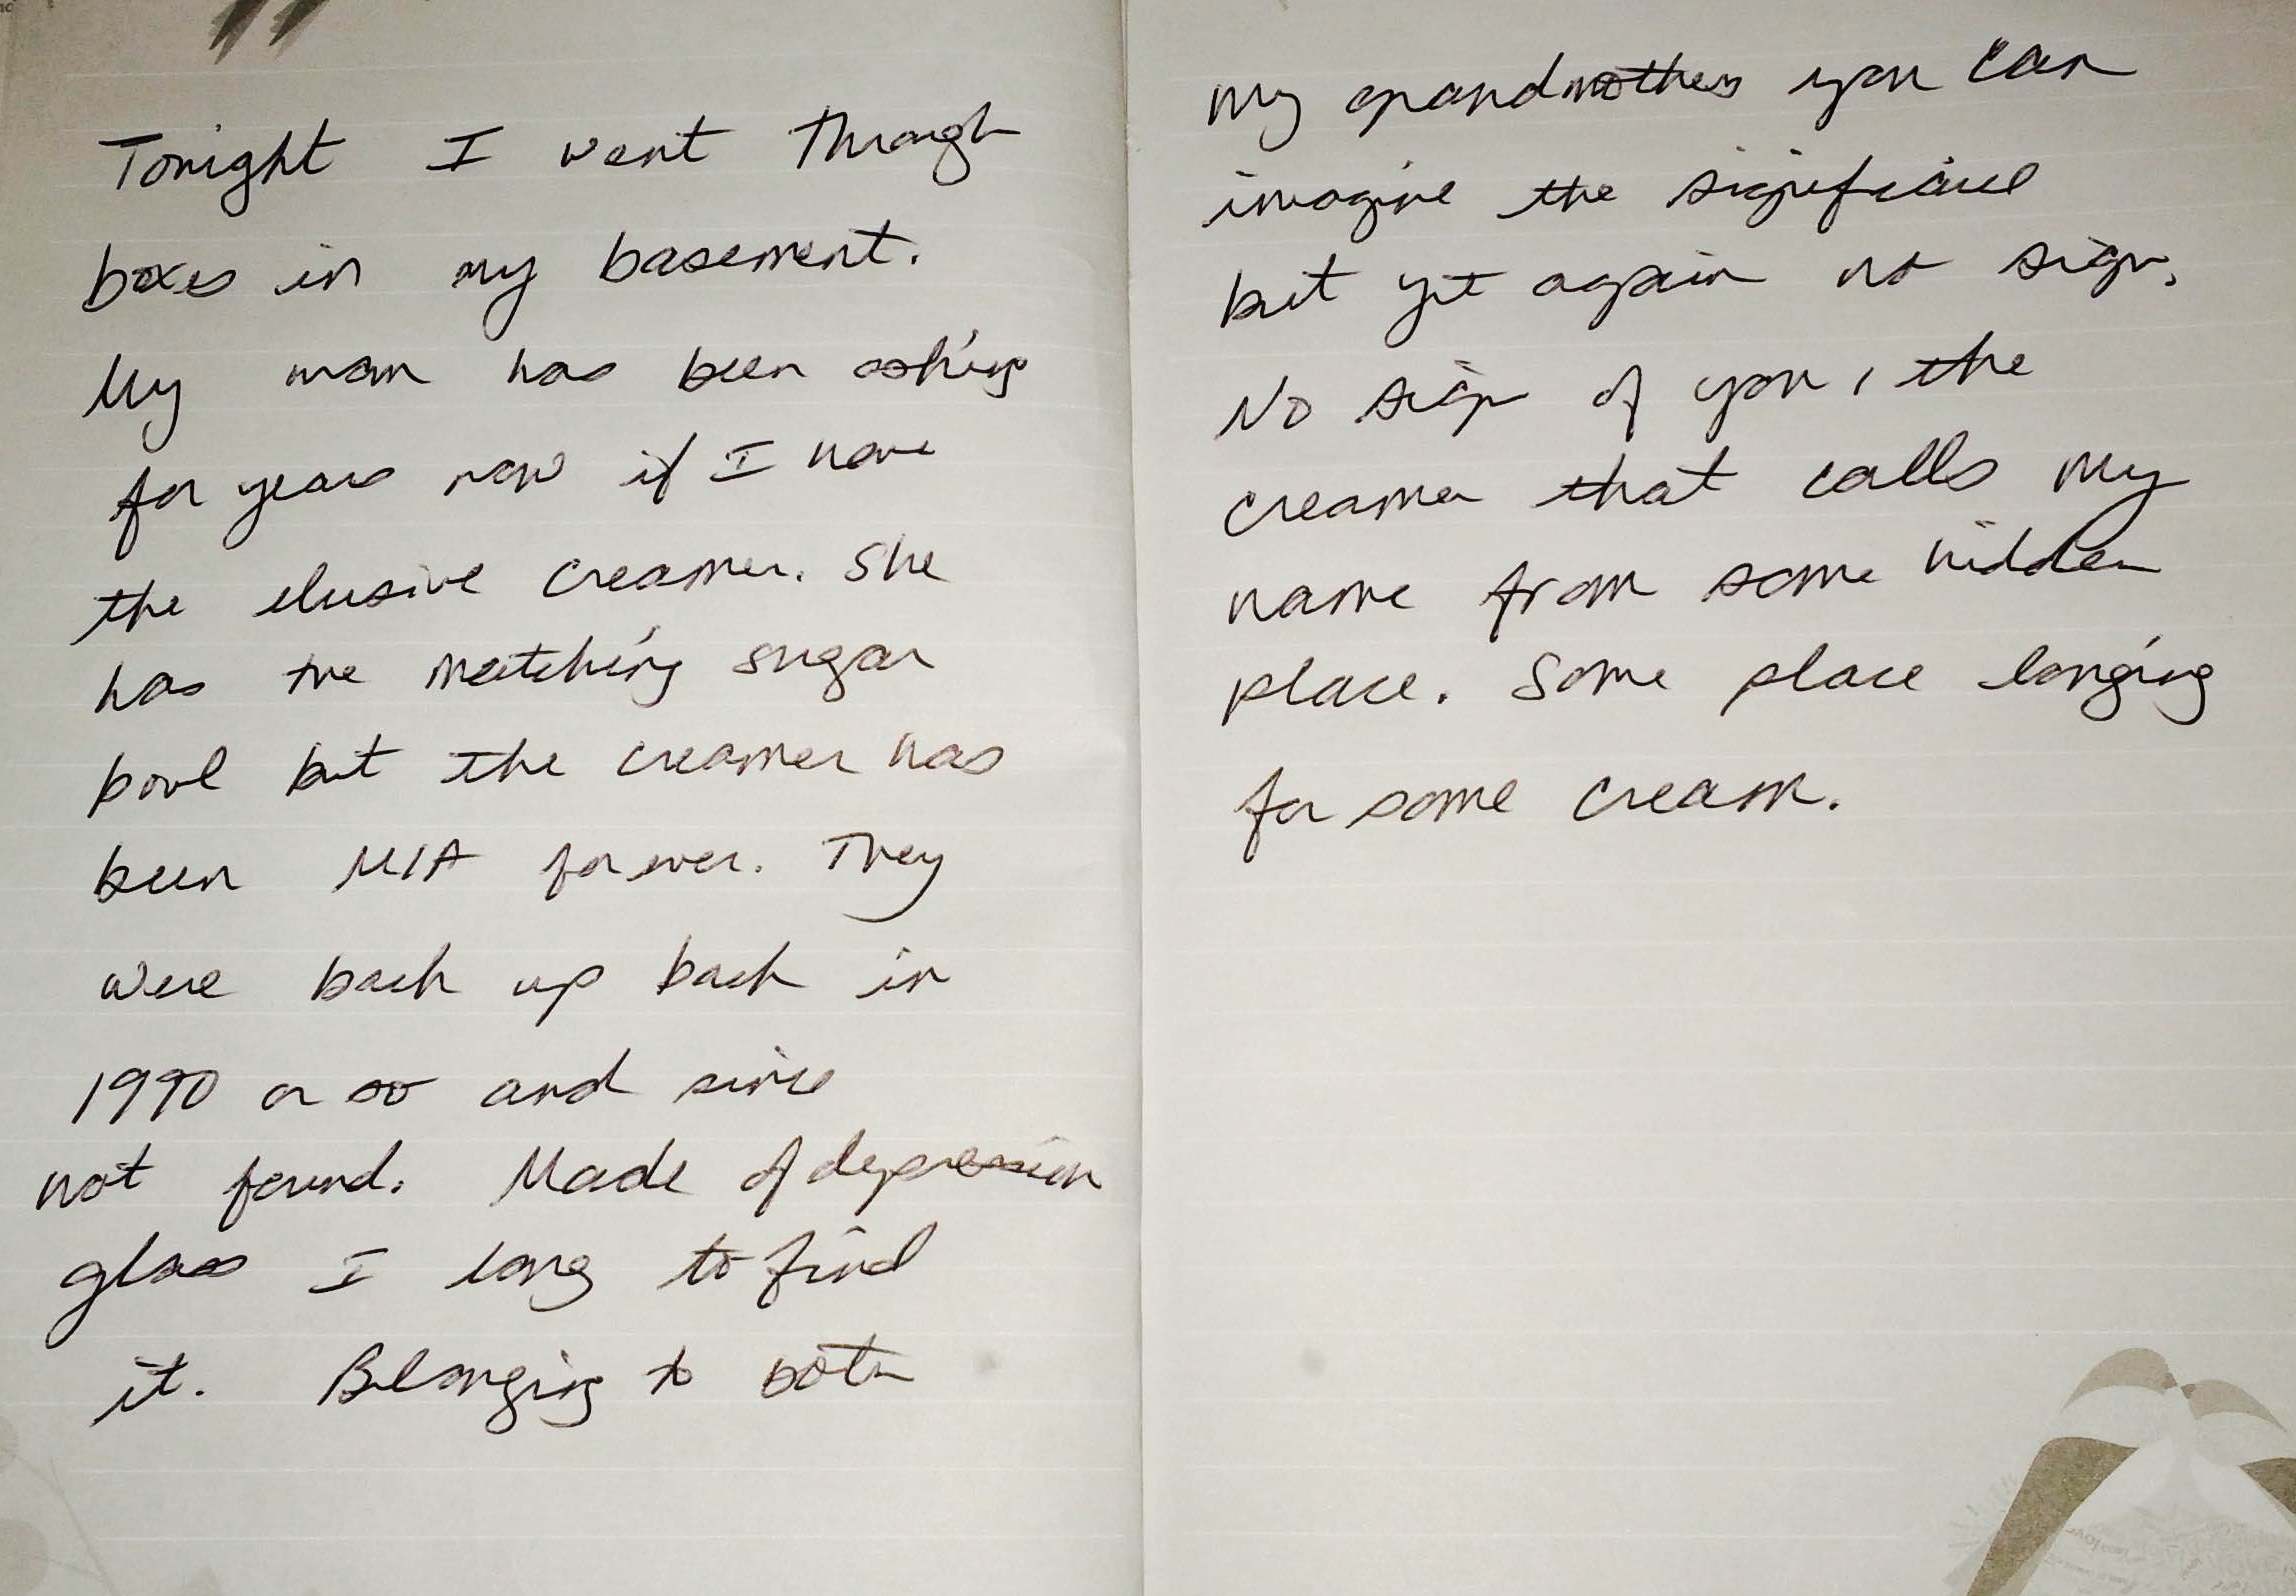 Tonight I went through
boxes in my basement.
My mom has been asking
for years now if I have
the elusive creamer. She
has the matching sugar
bowl but the creamer has
been MIA forever. They
were back up back in
1990 or so and since
not found. Made of depression
glass I long to find
it. Belonging to both
my grandmothers you can
imagine the significance
but yet again no sign.
No sign of you, the
creamer that calls my
name from some hidden
place. Some place longing
for some cream.